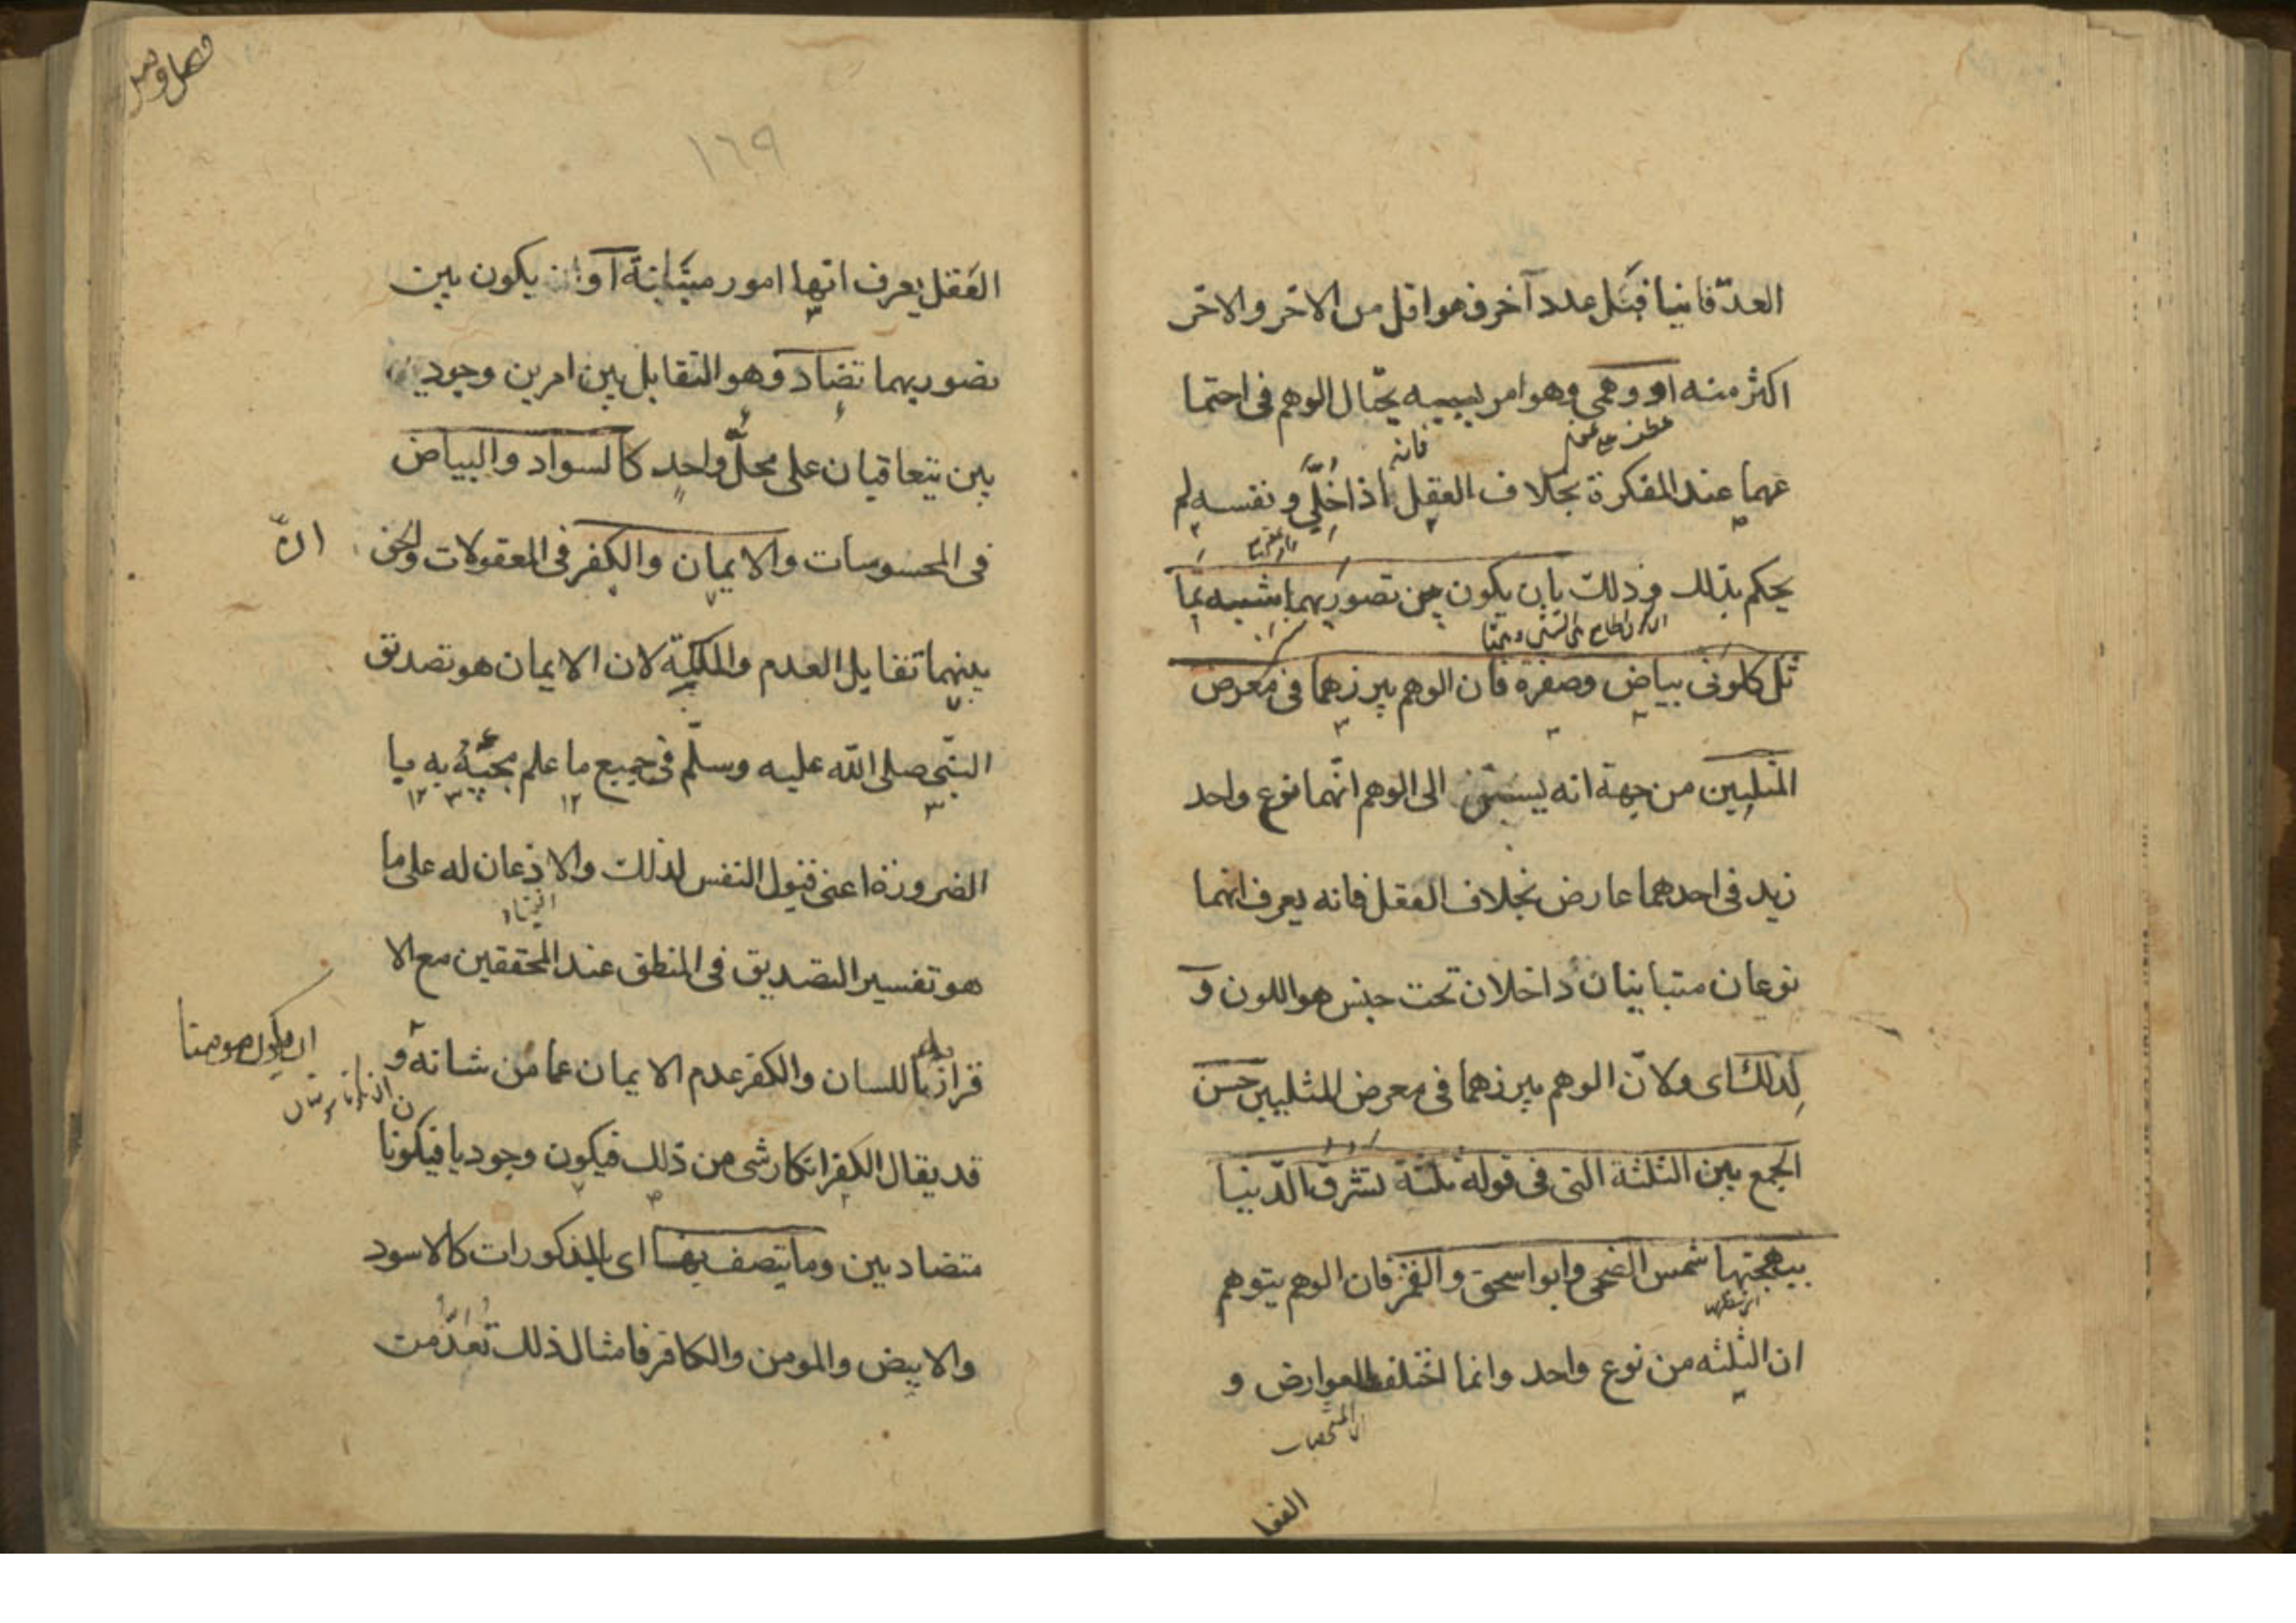 العدّ فانيا قبل عدد آخر فهو اقل من الاخر والاخر
اكثر منه او وهمى وهو امر بسببه يحتال الوهم فى اجتما
عطف على عقلى
فانه
عهما عند المفكرة بخلاف العقل اذا خلّى ونفسه لم
يحكم بذلك وذلك بان يكون بين تصوريهما شبه تما
ثل كلونى بياض وصفرة فان الوهم يبرزهما فى معرض
المثلين من جهة انه يسبق الى الوهم انهما نوع واحد
زيد فى احدهما عارض بخلاف العقل فانه يعرف انهما
نوعان متباينان داخلان تحت جنس هو اللون و
لذلك اى ولانّ الوهم يبرزهما فى معرض المثلين حسن
الجمع بين الثلثة التى فى قوله ثلثة تشرق الدّنيا
ببهجتها شمس الضحى وابو اسحق والقمر فان الوهم يتوهم
ان الثلثه من نوع واحد وانما اختلفت بالعوارض و
المشخصات
العقل
فصل وصل
١٦٩
العقل يعرف انها امور متباينة او ان يكون بين
تصوريهما تضاد وهو التقابل بين امرين وجوديـ
ـين يتعاقبان على محلّ واحد كالسواد والبياض
فى المحسوسات والايمان والكفر فى المعقولات والحق
انّ
بينهما تقابل العدم والملكة لان الايمان هو تصديق
النبى صلى الله عليه وسلّم فى جميع ما علم مجيئه به با
الضرورة اعنى قبول النفس لذلك والاذعان له على ما
هو تفسير التصديق فى المنطق عند المحققين مع الا
قرار باللسان والكفر عدم الايمان عما من شانه و
ان يكون مومنا
قد يقال الكفر انكار شى من ذلك فيكون وجوديا فيكونا
ن
متضادين وما يتصف بها اى بالمذكورات كالاسود
والابيض والمومن والكافر فامثال ذلك تعدّ مت